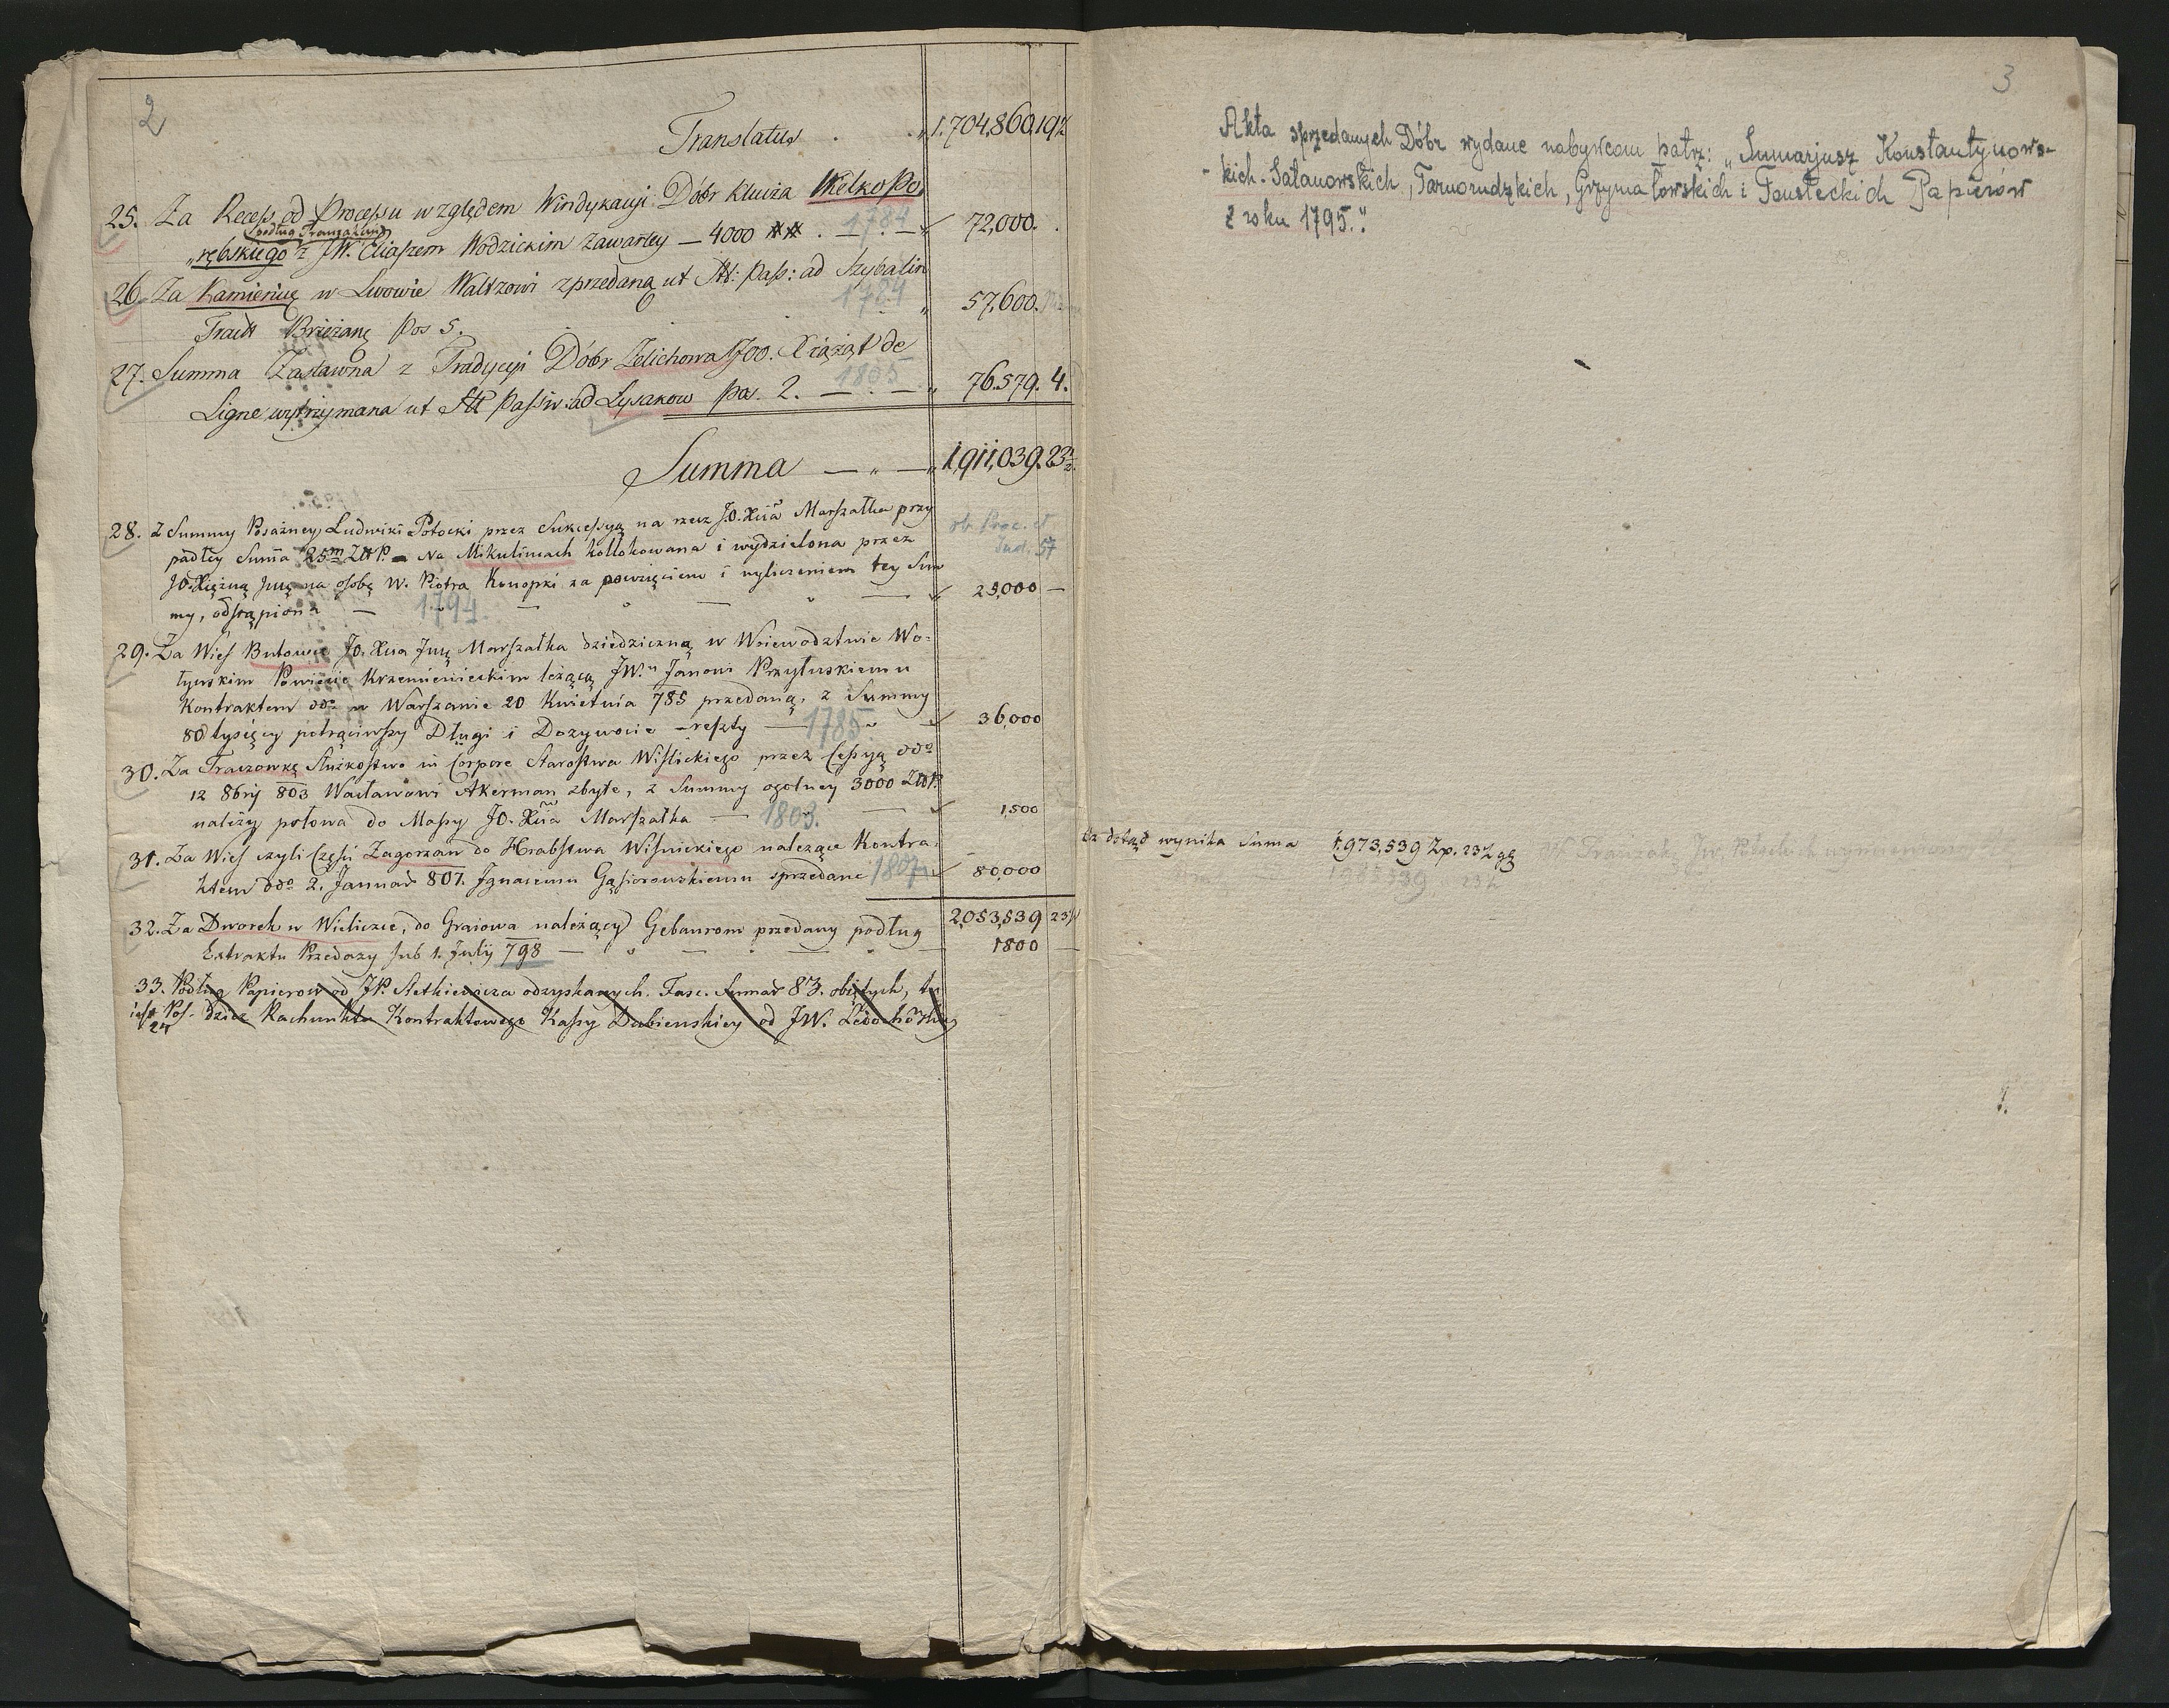 2
Translatus . . „ 1.704,860 19½
25. Za Recess od Processu względem Windykacyi Dóbr Klucza Wielko Po,
podług Tranzakcyi
„rębskiego z JW. Eliaszem Wodzickim zawartey — 4000 ## . — 1784 — 72,000.
26. Za Kamienicę w Lwowie Waltzowi zprzedaną ut Att: Pass: ad Szybalin
1784 57,600.
Tractt Brzezany Pos 5.
27. Summa Zastawna z Tradycyi Dóbr Zelichowa JOO. Xiążąt de
1805
Ligne wytrzymana ut Att Passiv: ad Lysakow Pos. 2. — . — „ 76.579. 4.
Summa — „ — „ 1,911,039. 23½.
28. Z Summy Posażney Ludwiki Potocki przez Sukcessyą na rzecz JO. Xcia Marszałka przy
padłey Summa 25m Złł P. — Na Mikulincach kollokowana i wydzielona przez
ob. Proc. et Jud. 57
JO. Xiężnę Jmę na osobę W. Piotra Konopki za powzięciem i wyliczeniem tey Sum
my, odstąpiona — 1794. — „ — „ — 25,000 —
29. Za Wieś Butowce JO. Xcia Jmę Marszałka dziedziczną w Woiewodztwie Wo-
łyńskim Powiecie Krzemienieckim leżącą JW. Janowi Przyłuskiemu
Kontraktem ddo w Warszawie 20 Kwietnia 785 przedaną, z Summy
80 tysięcy potrąciwszy Długi i Dozywocie – reszty — 1785. „ 36,000
30. Za Traczowkę Służkostwo in Corpore Starostwa Wiślickiego przez Cessyą ddo
12 8bry 803 Wacławowi Akerman zbyte, z Summy ogolney 3000 Złł P.
należy połowa do Massy JO. Xcia Marszałka — 1803. — 1,500
31. Za Wieś czyli Części Zagorzan do Hrabstwa Wiśnickiego nalezące Kontra-
ktem ddo 2. Januar 807. Ignacemu Gąsiorowskiemu sprzedane 1807 80,000
2,053,539 23½
32. Za Dworek w Wieliczce, do Graiowa należący Gebaurom przedany podług
Extraktu Przedazy sub 1. July 798 — „ — „ — 1800 —
33. Podług Papierow od JP. Stetkiewicza odzyskanych. Fasc. Sumar 83. obiętych, tu
iest Pos. 24 dzież Rachunktu Kontraktowego Kassy Dubienskiey od JW. Ledochowskiey
3
Akta sprzedanych Dóbr wydane nabywcom patrz: „Sumarjusz Konstantynows-
-kich-Satanowskich, Tarnorudzkich, Grzymałowskich i Tousteckich Papierów
z roku 1795."
Az dotąd wynika Suma 1.973,539 Zp. 23½ gę